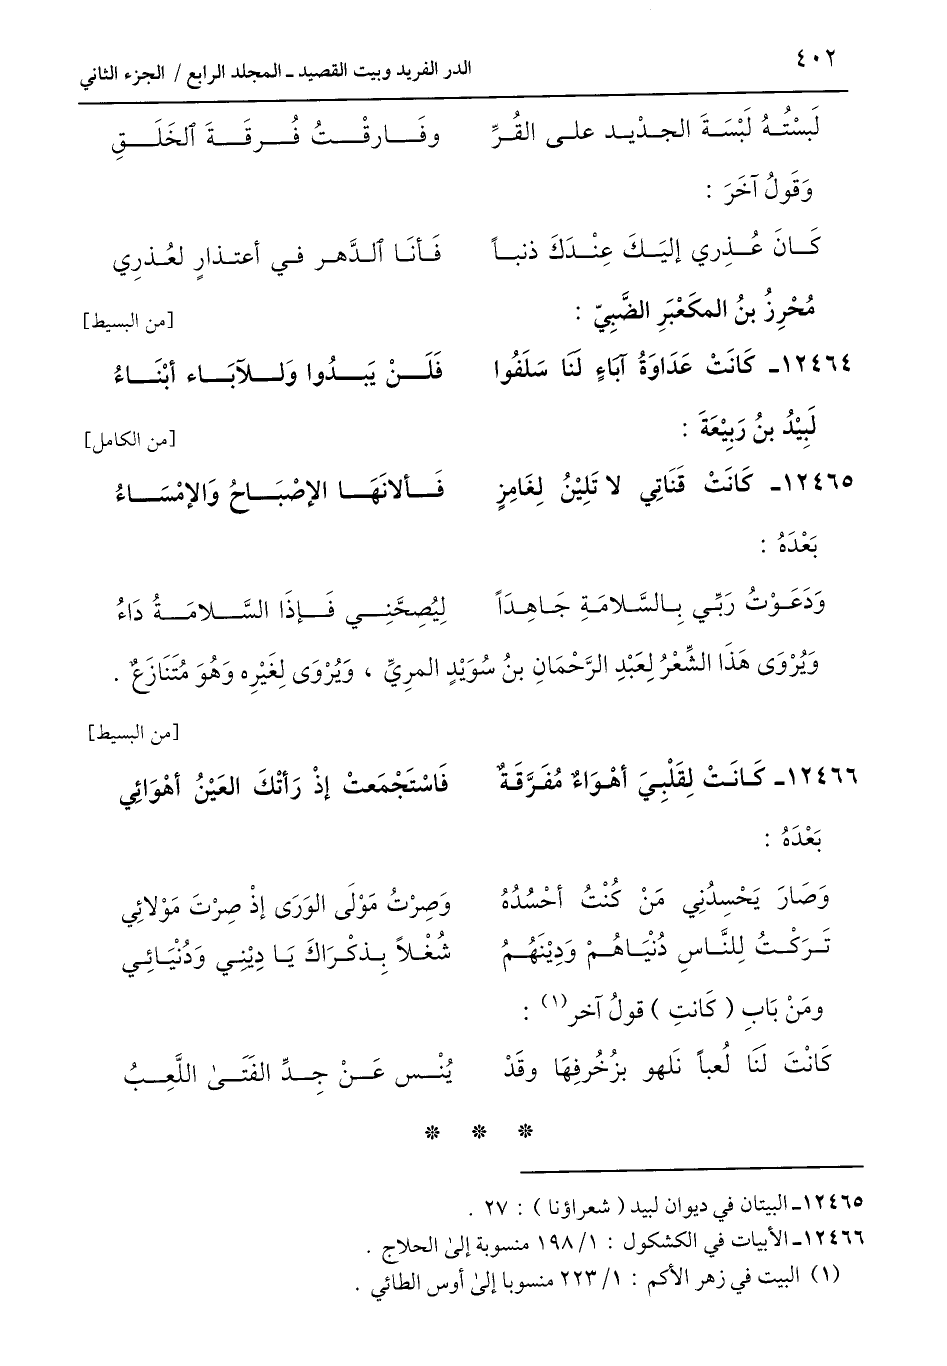 ٤٠٢
الدر الفريد وبيت القصيد ـ المجلد الرابع / الجزء الثاني
لَبِسْتُهُ لَبْسَةَ الجـذيـد علـى القُـرِّ وفـارقـتُ فُـرقـةَ ٱلخَلَـقِ
وَقَولُ آخَرَ :
كـانَ عُـذِري إليَـكَ عِنْـدَكَ ذنبـاً فَـأنـا ٱلـدَّهـر فـي أعتـذارٍ لعُـذرِي
مُحْرِزُ بنُ المكَعْبَرِ الضَّبِيّ :
[من البسيط]
١٢٤٦٤ـ كَانَتْ عَدَاوَةُ آبَاءٍ لَنَا سَلَفُوا فَلَـنْ يَبـدُوا وَلـلآبَـاء أبْنَـاءُ
لَبِيْدُ بنُ رَبِيْعَةَ :
[من الكامل]
١٢٤٦٥ـ كَانَتْ قَنَاتِي لا تَلِيْنُ لِغَامِزٍ فَـألانَهَـا الإصْبَـاحُ وَالإمْسَـاءُ
بَعْدَهُ :
وَدَعَـوْتُ رَبِّي بِـالسَّلامَةِ جَـاهِـدَاً لِيُصِحَّنِـي فَـإذَا السَّـلامَـةُ دَاءُ
وَيُرْوَى هَذَا الشِّعْرُ لِعَبْدِ الرَّحْمَانِ بنُ سُوَيْدٍ المريِّ ، وَيُرْوَى لِغَيْرِه وَهُوَ مُتَنَازَعٌ .
[من البسيط]
١٢٤٦٦ـ كَـانَـتْ لِقَلْبِيَ أهْوَاءٌ مُفَرَّقَةٌ فَاسْتَجْمَعتْ إذْ رَأتْكَ العَيْنُ أهْوَائِي
بَعْدَهُ :
وَصَارَ يَحْسِدُنِي مَنْ كُنْتُ أحْسُدُهُ وَصِرْتُ مَوْلَى الوَرَى إذْ صِرْتَ مَوْلائِي
تَـرَكْـتُ لِلنَّـاسِ دُنْيَـاهُـمْ وَدِيْنَهُـمُ شُغْـلاً بِـذكْـرَاكَ يَـا دِيْنِـي وَدُنْيَـائِـي
ومَنْ بَابِ ( كَانتِ ) قولُ آخر(١) :
كَانْتَ لَنَا لُعباً نَلهو بزُخُرفِهَا وقَدْ يُنْـس عَـنْ جِـدِّ الفَتَـىٰ اللَّعِـبُ
* * *
١٢٤٦٥ـ البيتان في ديوان لبيد ( شعراؤنا ) : ٢٧ .
١٢٤٦٦ـ الأبيات في الكشكول : ١ / ١٩٨ منسوبة إلىٰ الحلاج .
(١) البيت في زهر الأكم : ١ / ٢٢٣ منسوبا إلىٰ أوس الطائي .